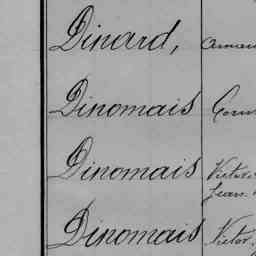 Dinard,
Dinomais
Dinomais Victor
Jean
Dinomais Victor